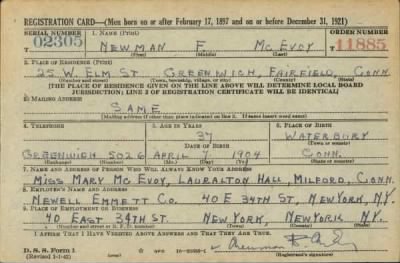 REGISTRATION CARD—(Men born on or after February 17, 1897 and on or before December 31, 1921)
SERIAL NUMBER 1. NAME (Print) ORDER NUMBER
02305 NEWMAN F. MC EVOY 11885
(First) (Middle) (Last)
2. PLACE OF RESIDENCE (Print)
25 W. ELM ST. GREENWICH, FAIRFIELD, CONN.
(Number and street) (Town, township, village, or city) (County) (State)
[THE PLACE OF RESIDENCE GIVEN ON THE LINE ABOVE WILL DETERMINE LOCAL BOARD
JURISDICTION; LINE 2 OF REGISTRATION CERTIFICATE WILL BE IDENTICAL]
3. MAILING ADDRESS
SAME
[Mailing address if other than place indicated on line 2. If same insert word same]
4. TELEPHONE 5. AGE IN YEARS 6. PLACE OF BIRTH
37 WATERBURY
DATE OF BIRTH (Town or county)
GREENWICH 5026 APRIL 7 1904 CONN.
(Exchange) (Number) (Mo.) (Day) (Yr.) (State or country)
7. NAME AND ADDRESS OF PERSON WHO WILL ALWAYS KNOW YOUR ADDRESS
MISS MARY MC EVOY, LAURALTON HALL, MILFORD, CONN.
8. EMPLOYER'S NAME AND ADDRESS
NEWELL EMMETT CO. 40 E 34TH ST., NEW YORK, N.Y.
9. PLACE OF EMPLOYMENT OR BUSINESS
40 EAST 34TH ST. NEW YORK, NEW YORK N.Y.
(Number and street or R. F. D. number) (Town) (County) (State)
I AFFIRM THAT I HAVE VERIFIED ABOVE ANSWERS AND THAT THEY ARE TRUE.
D. S. S. Form 1
(Revised 1-1-42) (Registrant's signature)